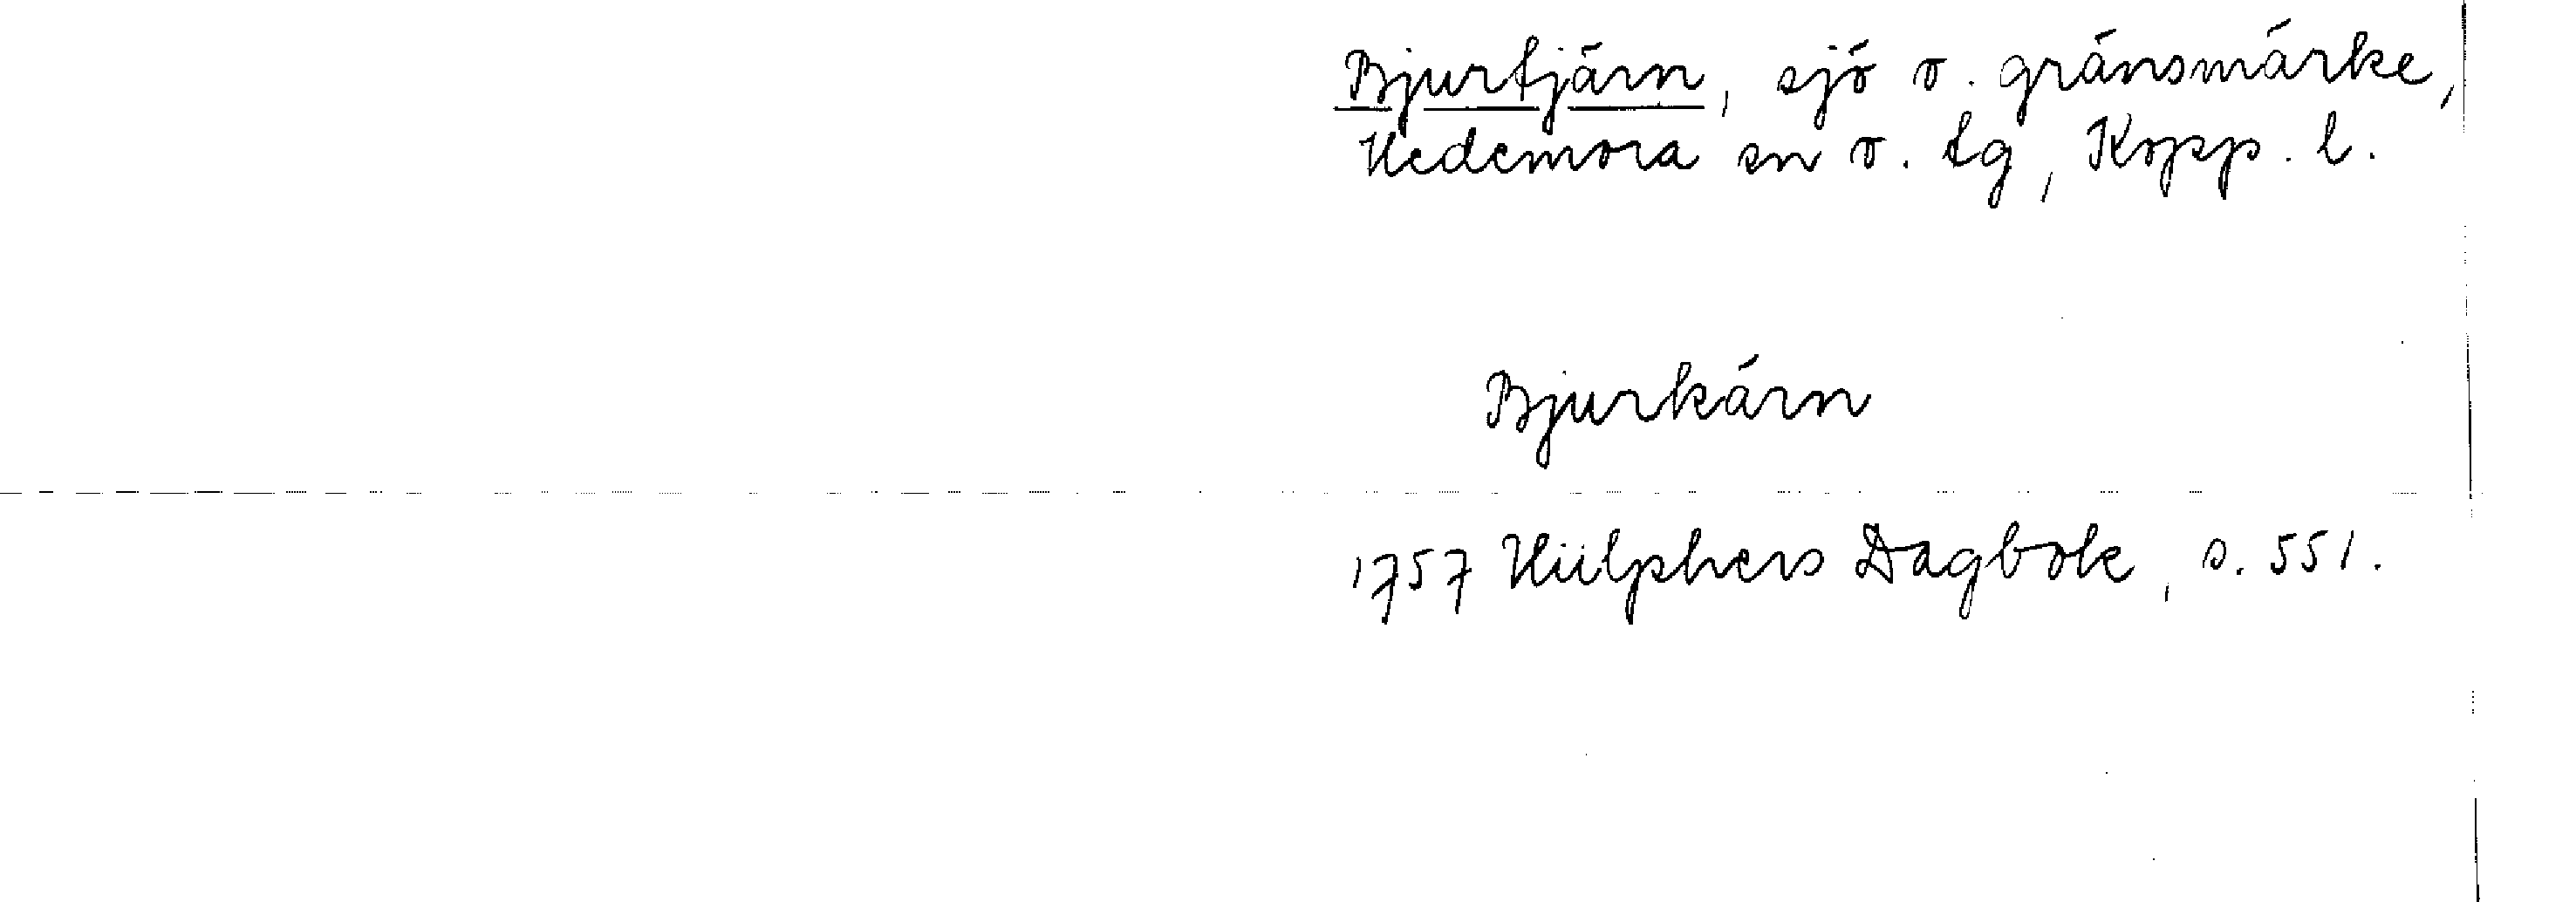 Bjurtjärn, sjö o. gränsmärke,
Hedemora sn o. tg, Kopp. l.
Bjurkärn
1757 Hülphers Dagbok, s. 551.